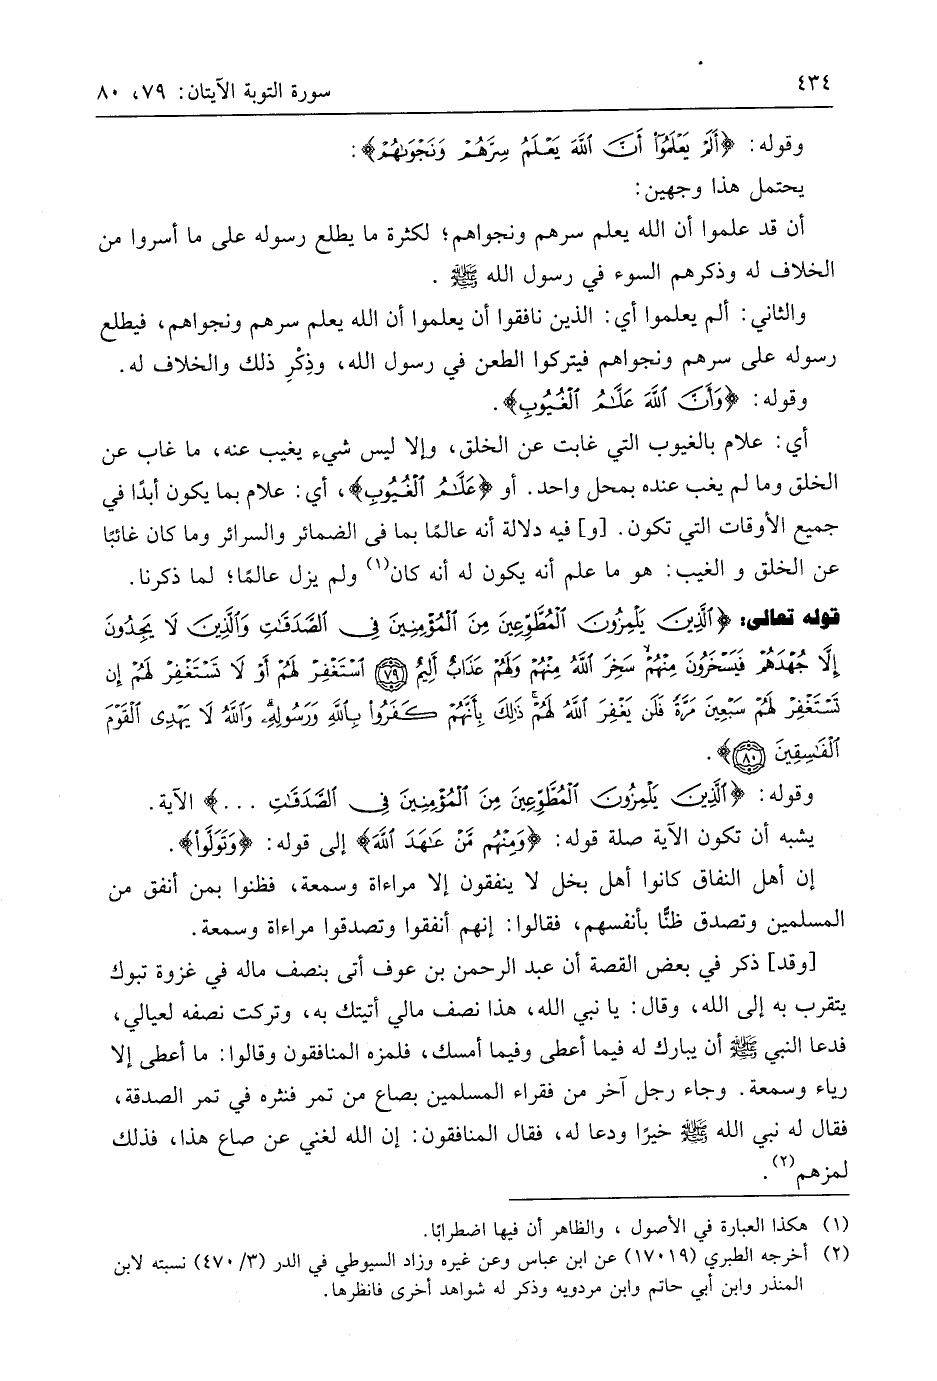 ٤٣٤
سورة التوبة الآيتان: ٧٩، ٨٠
وقوله: ﴿أَلَمْ يَعْلَمُوٓا۟ أَنَّ ٱللَّهَ يَعْلَمُ سِرَّهُمْ وَنَجْوَىٰهُمْ﴾:
يحتمل هذا وجهين:
أن قد علموا أن الله يعلم سرهم ونجواهم؛ لكثرة ما يطلع رسوله على ما أسروا من
الخلاف له وذكرهم السوء في رسول الله ﷺ .
والثاني: ألم يعلموا أي: الذين نافقوا أن يعلموا أن الله يعلم سرهم ونجواهم، فيطلع
رسوله على سرهم ونجواهم فيتركوا الطعن في رسول الله، وذِكْرِ ذلك والخلاف له.
وقوله: ﴿وَأَنَّ ٱللَّهَ عَلَّٰمُ ٱلْغُيُوبِ﴾.
أي: علام بالغيوب التي غابت عن الخلق، وإلا ليس شيء يغيب عنه، ما غاب عن
الخلق وما لم يغب عنده بمحل واحد. أو ﴿عَلَّٰمُ ٱلْغُيُوبِ﴾، أي: علام بما يكون أبدًا في
جميع الأوقات التي تكون. [و] فيه دلالة أنه عالمًا بما فى الضمائر والسرائر وما كان غائبًا
عن الخلق و الغيب: هو ما علم أنه يكون له أنه كان(١) ولم يزل عالمًا؛ لما ذكرنا.
قوله تعالى: ﴿ٱلَّذِينَ يَلْمِزُونَ ٱلْمُطَّوِّعِينَ مِنَ ٱلْمُؤْمِنِينَ فِى ٱلصَّدَقَٰتِ وَٱلَّذِينَ لَا يَجِدُونَ
إِلَّا جُهْدَهُمْ فَيَسْخَرُونَ مِنْهُمْ ۙ سَخِرَ ٱللَّهُ مِنْهُمْ وَلَهُمْ عَذَابٌ أَلِيمٌ ٧٩ ٱسْتَغْفِرْ لَهُمْ أَوْ لَا تَسْتَغْفِرْ لَهُمْ إِن
تَسْتَغْفِرْ لَهُمْ سَبْعِينَ مَرَّةً فَلَن يَغْفِرَ ٱللَّهُ لَهُمْ ۚ ذَٰلِكَ بِأَنَّهُمْ كَفَرُوا۟ بِٱللَّهِ وَرَسُولِهِۦ ۗ وَٱللَّهُ لَا يَهْدِى ٱلْقَوْمَ
ٱلْفَٰسِقِينَ ٨٠﴾.
وقوله: ﴿ٱلَّذِينَ يَلْمِزُونَ ٱلْمُطَّوِّعِينَ مِنَ ٱلْمُؤْمِنِينَ فِى ٱلصَّدَقَٰتِ ...﴾ الآية.
يشبه أن تكون الآية صلة قوله: ﴿وَمِنْهُم مَّنْ عَٰهَدَ ٱللَّهَ﴾ إلى قوله: ﴿وَتَوَلَّوا۟﴾.
إن أهل النفاق كانوا أهل بخل لا ينفقون إلا مراءاة وسمعة، فظنوا بمن أنفق من
المسلمين وتصدق ظنًّا بأنفسهم، فقالوا: إنهم أنفقوا وتصدقوا مراءاة وسمعة.
[وقد] ذكر في بعض القصة أن عبد الرحمن بن عوف أتى بنصف ماله في غزوة تبوك
يتقرب به إلى الله، وقال: يا نبي الله، هذا نصف مالي أتيتك به، وتركت نصفه لعيالي،
فدعا النبي ﷺ أن يبارك له فيما أعطى وفيما أمسك، فلمزه المنافقون وقالوا: ما أعطى إلا
رياء وسمعة. وجاء رجل آخر من فقراء المسلمين بصاع من تمر فنثره في تمر الصدقة،
فقال له نبي الله ﷺ خيرًا ودعا له، فقال المنافقون: إن الله لغني عن صاع هذا، فذلك
لمزهم(٢).
(١) هكذا العبارة في الأصول ، والظاهر أن فيها اضطرابًا.
(٢) أخرجه الطبري (١٧٠١٩) عن ابن عباس وعن غيره وزاد السيوطي في الدر (٤٧٠/٣) نسبته لابن
المنذر وابن أبي حاتم وابن مردويه وذكر له شواهد أخرى فانظرها.